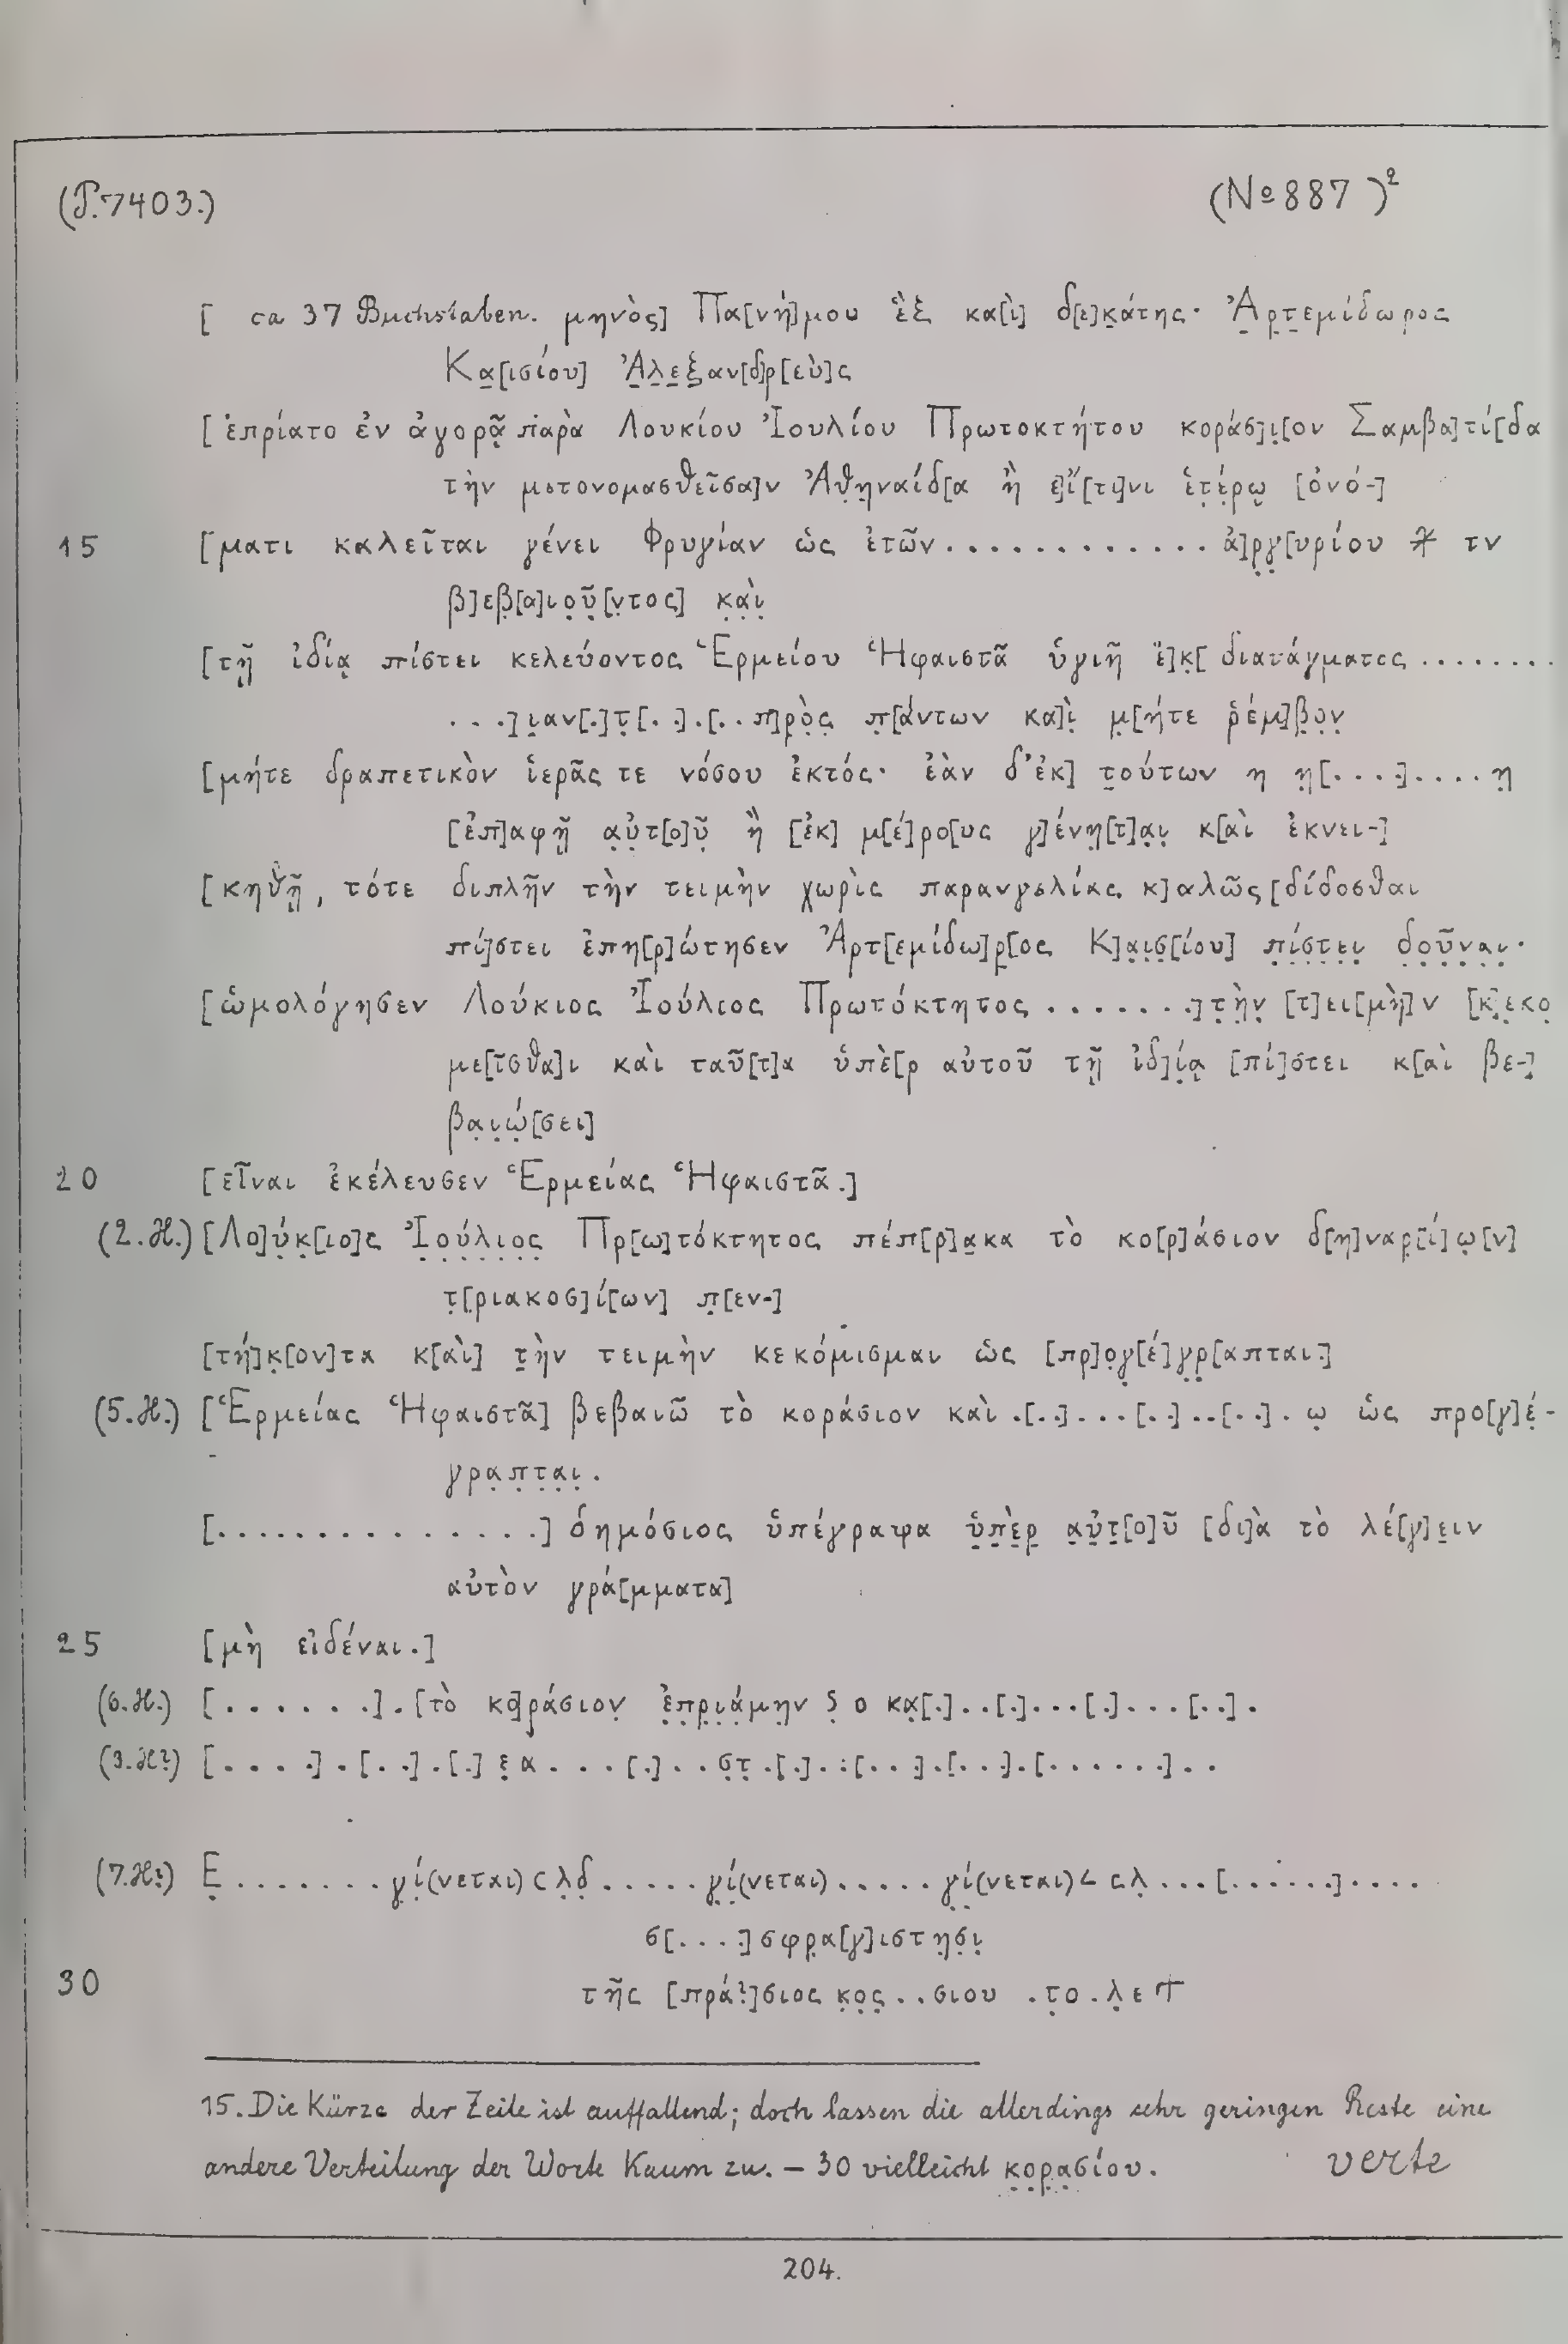 (P. 7403.)
(No 887)²
[ ca 37 Buchstaben. μηνὸς] Πα[νή]μου ἓξ κα[ὶ] δ[ε]κ̣άτης· Ἀ̣ρ̣τ̣εμίδωρος
Κα̣[ισίου] Ἀ̣λ̣ε̣ξ̣αν[δ]ρ[εὺ]ς
[ἐπρίατο ἐν ἀγορᾷ παρὰ Λουκίου Ἰουλίου Πρωτοκτήτου κοράσ]ι̣[ον Σαμβα]τί[δα
τὴν μετονομασθεῖσα]ν Ἀθ̣η̣ναίδ[α ἢ ε]ἴ[τι]νι ἑτ̣έ̣ρῳ̣ [ὀνό-]
15 [ματι καλεῖται γένει Φρυγίαν ὡς ἐτῶν............ἀ]ρ̣γ̣[υρίου ⚹ τν
β]εβ̣[α]ιο̣ῦ̣[ντος] κ̣α̣ὶ̣
[τῇ ἰδίᾳ πίστει κελεύοντος Ἑρμείου Ἡφαιστᾶ ὑγιῆ ἔ]κ̣[ διατάγματος ........
...]ι̣αν[.]τ̣[..].[..π]ρ̣ὸ̣ς̣ π̣[άντων κα]ὶ̣ μ̣[ήτε ῥέμ]β̣ο̣ν̣
[μήτε δραπετικὸν ἱερᾶς τε νόσου ἐκτός· ἐὰν δ’ἐκ] τ̣ούτων η η̣[....]....η̣
[ἐπ]αφῇ α̣ὐ̣τ[ο]ῦ̣ ἢ [ἐκ] μ[έ]ρο[υς γ]ένη̣[τ]α̣ι̣ κ[αὶ ἐκνει-]
[κηθῇ, τότε διπλῆν τὴν τειμὴν χωρὶς παρανγελίας κ]αλῶς [δίδοσθαι
πί]στει ἐπη[ρ]ώτησεν Ἀρτ[εμίδω]ρ̣[ος Κ]α̣ι̣σ̣[ίου] π̣ί̣σ̣τ̣ε̣ι̣ δ̣ο̣ῦ̣ν̣α̣ι̣·
[ὡμολόγησεν Λούκιος Ἰούλιος Πρωτόκτητος .......]τ̣ὴ̣ν̣ [τ]ει[μὴ]ν [κ]ε̣κο̣
με[ῖσθα]ι καὶ ταῦ[τ]α ὑπὲ[ρ αὐτοῦ τῇ ἰδ]ί̣ᾳ̣ [πί]στει κ[αὶ βε-]
βα̣ι̣ώ̣[σει]
20 [εἶναι ἐκέλευσεν Ἑρμείας Ἡφαιστᾶ.]
(2. H.) [Λο]ύ̣κ̣[ιο]ς Ἰ̣ο̣ύ̣λ̣ι̣ο̣ς̣ Πρ[ω]τόκτητος πέπ[ρ]α̣κα τὸ κο[ρ]άσιον δ[η]ναρ̣[ί]ω̣[ν]
τ̣[ριακοσ]ί[ων] π̣[εν-]
[τή]κ̣[ον]τα κ[αὶ] τ̣ὴν τειμὴν κεκόμισμαι ὡς [πρ]ο̣γ̣[έ]γ̣ρ̣[απται.]
(5. H.) [Ἑρμείας Ἡφαιστᾶ] βεβαιῶ τὸ κοράσιον καὶ .[..]...[..]..[..]. ω̣ ὡς προ[γ]έ̣-
γρα̣π̣τ̣α̣ι̣.
[..............] δημόσιος ὑπέγραψα ὑ̣π̣ὲ̣ρ̣ α̣ὐ̣τ̣[ο]ῦ [δι]ὰ τὸ λέ[γ]ε̣ιν
αὐτὸν γρά[μματα]
25 [μὴ εἰδέναι.]
(6. H.) [......].[τὸ κο]ράσιον̣ ἐ̣π̣ρ̣ι̣ά̣μη̣ν ς̣ ο κα̣[.]..[.]...[.]...[..].
(3. H?) [....].[..].[.] ε̣ α...[.]..σ̣τ̣.[.].:[...].[...].[......]..
(7. H?) Ε̣........γ̣ί̣(νεται) ϲ λ̣δ̣.....γ̣ί̣(νεται).....γ̣ί̣(νεται) ∠ ϲλ̣...[......]....
σ[....]σφρ̣α[γ]ιστη̣σ̣ι̣
30 τῆς [πρά?]σιος κ̣ο̣ς̣..σιου .τ̣ο.λ̣ε
15. Die Kürze der Zeile ist auffallend; doch lassen die allerdings sehr geringen Reste eine
andere Verteilung der Worte kaum zu. – 30 vielleicht κ̣ο̣ρ̣α̣σίου.
verte
204.